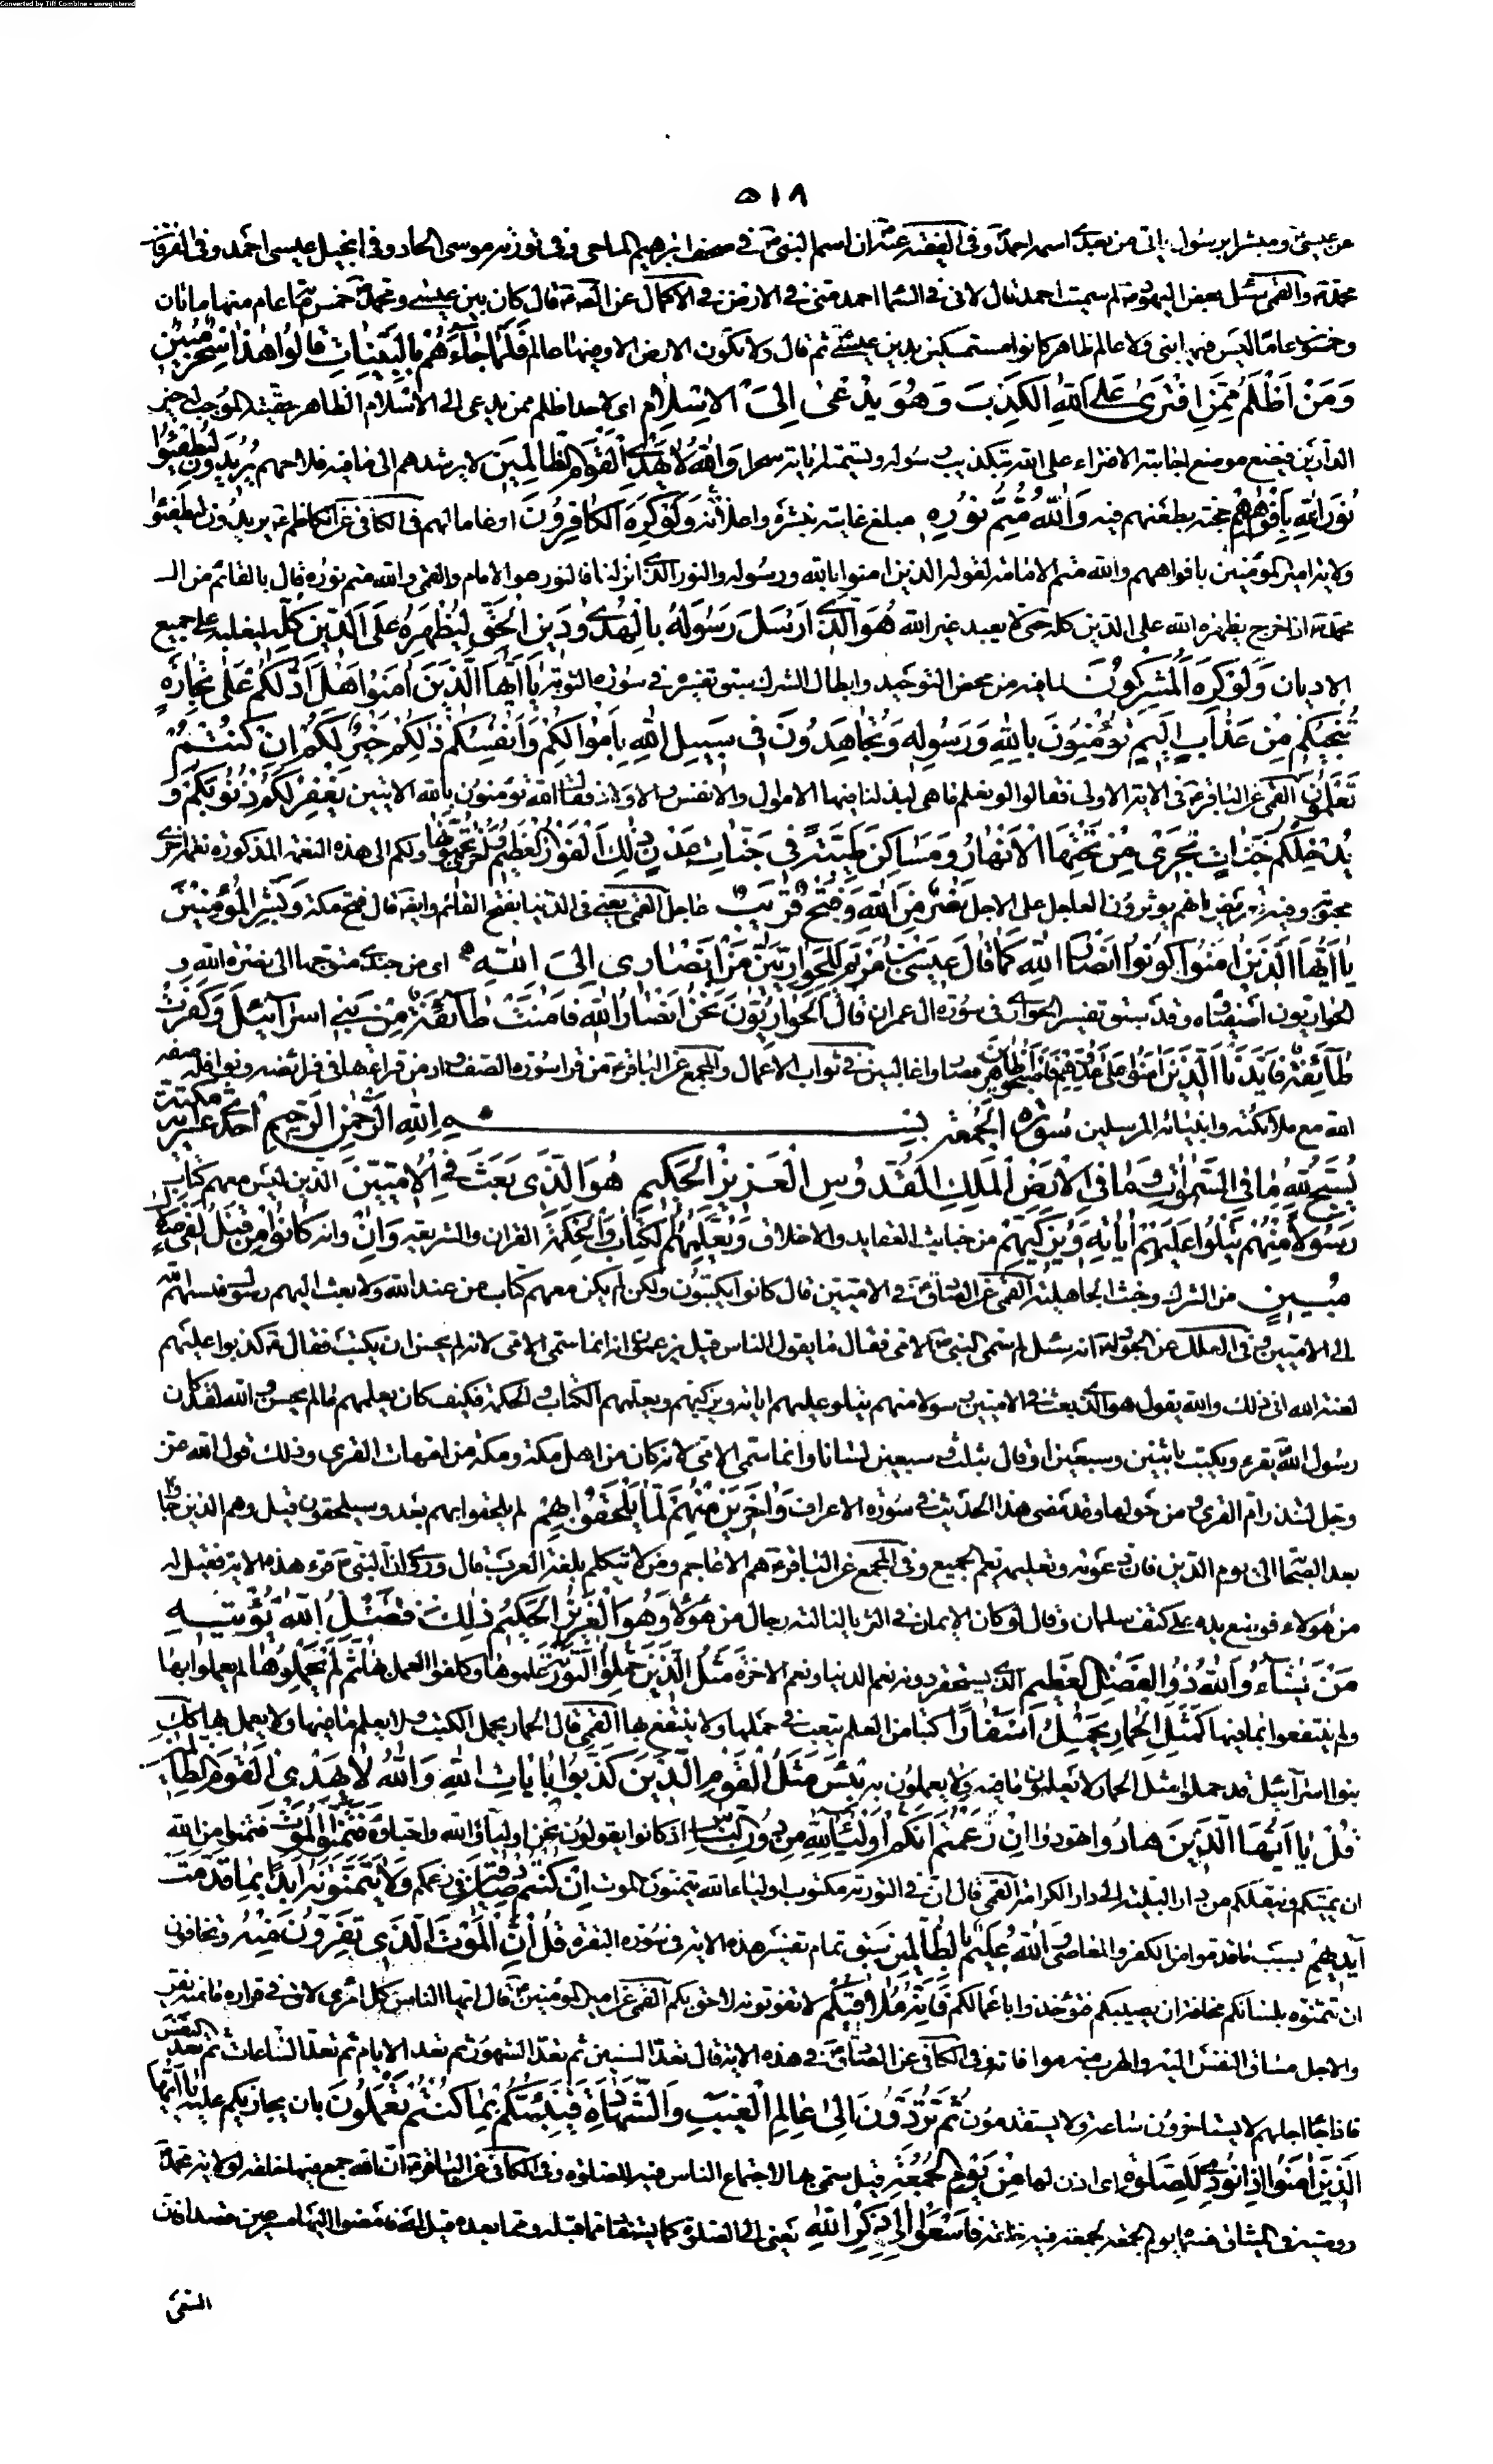 Converted by Tiff Combine - unregistered
٥١٨
عن عيسى و مبشرا برسول ياتى من بعدى اسمه احمد و فى الفقيه عنه ان اسم النبى ص فى صحف ابرهيم الماحى و فى توزية موسى الحاد و فى انجيل عيسى احمد و فى الفرقان
محمد و القمى سئل بعض اليهود لم سميت احمد قال لانى فى السماء احمد منى فى الارض فى الاكمال عن الص قال كان بين عيسى و محمد خمس مائة عام منها مائتان
و خمسون عاما ليس فيها نبى ولا عالم ظاهر كانوا مستمسكين بدين عيسى ثم قال ولا تكون الارض الا و فيها عالم فَلَمَّا جَاءَهُمْ بِالْبَيِّنَاتِ قَالُوا هٰذَا سِحْرٌ مُبِينٌ
وَمَنْ اَظْلَمُ مِمَّنِ افْتَرَىٰ عَلَى اللّٰهِ الْكَذِبَ وَهُوَ يُدْعىٰ اِلَى الْاِسْلامِ اى لا احد اظلم ممن يدعى الى الاسلام الظاهر حقيته الموجب له خير
الدارين فيضع موضع اجابته الافتراء على الله بتكذيب رسوله و تسمية اياته سحرا وَاللّٰهُ لا يَهْدِى الْقَوْمَ الظَّالِمِينَ لا يرشدهم الى ما فيه فلاحهم يُرِيدُونَ لِيُطْفِئُوا
نُورَ اللّٰهِ بِاَفْوَاهِهِمْ بطعنهم فيه وَاللّٰهُ مُتِمُّ نُورِهِ مبلغ غايته بنشره و اعلائه وَلَوْ كَرِهَ الْكَافِرُونَ ارغاما لهم فى الكافى عن الكاظم يريدون ليطفئوا
ولاية امير المؤمنين بافواههم والله متم الامامة لقوله الذين امنوا بالله و رسوله والنور الذى انزلنا فالنور هو الامام و القمى والله متم نوره قال بالقائم من ال
محمد اذا خرج يظهره الله على الدين كله حتى لا يعبد غير الله هُوَ الَّذِى اَرْسَلَ رَسُولَهُ بِالْهُدىٰ وَدِينِ الْحَقِّ لِيُظْهِرَهُ عَلَى الدِّينِ كُلِّهِ ليغلبه على جميع
الاديان وَلَوْ كَرِهَ الْمُشْرِكُونَ لما فيه من محض التوحيد و ابطال الشرك سبق تفسيره فى سورة التوبة يَا اَيُّهَا الَّذِينَ اٰمَنُوا هَلْ اَدُلُّكُمْ عَلَىٰ تِجَارَةٍ
تُنْجِيكُمْ مِنْ عَذَابٍ اَلِيمٍ تُؤْمِنُونَ بِاللّٰهِ وَرَسُولِهِ وَتُجَاهِدُونَ فِى سَبِيلِ اللّٰهِ بِاَمْوَالِكُمْ وَاَنْفُسِكُمْ ذٰلِكُمْ خَيْرٌ لَكُمْ اِنْ كُنْتُمْ
تَعْلَمُونَ القمى عن الباقر فى الاية الاولى فقالوا لو نعلم ما هى لبذلنا فيها الاموال و الانفس و الاولاد فقال الله تؤمنون بالله الايتين يَغْفِرْ لَكُمْ ذُنُوبَكُمْ وَ
يُدْخِلْكُمْ جَنَّاتٍ تَجْرِى مِنْ تَحْتِهَا الْاَنْهَارُ وَمَسَاكِنَ طَيِّبَةً فِى جَنَّاتِ عَدْنٍ ذٰلِكَ الْفَوْزُ الْعَظِيمُ وَاُخْرىٰ تُحِبُّونَهَا و لكم الى هذه النعمة المذكورة نعمة اخرى
محبوبة و فيه تعريض بانهم يؤثرون العاجل على الاجل نَصْرٌ مِنَ اللّٰهِ وَفَتْحٌ قَرِيبٌ عاجل القمى يعنى فى الدنيا بفتح القائم و ايضا قال فتح مكة وَبَشِّرِ الْمُؤْمِنِينَ
يَا اَيُّهَا الَّذِينَ اٰمَنُوا كُونُوا اَنْصَارَ اللّٰهِ كَمَا قَالَ عِيسَى بْنُ مَرْيَمَ لِلْحَوَارِيِّينَ مَنْ اَنْصَارِى اِلَى اللّٰهِ اى من جندى متوجها الى نصرة الله و
الحواريون اصفياؤه و قد سبق تفسير الحوارى فى سورة ال عمران قَالَ الْحَوَارِيُّونَ نَحْنُ اَنْصَارُ اللّٰهِ فَاٰمَنَتْ طَائِفَةٌ مِنْ بَنِى اِسْرَائِيلَ وَكَفَرَتْ
طَائِفَةٌ فَاَيَّدْنَا الَّذِينَ اٰمَنُوا عَلَىٰ عَدُوِّهِمْ فَاَصْبَحُوا ظَاهِرِينَ فصاروا غالبين فى ثواب الاعمال و المجمع عن الباقر من قرا سورة الصف و ادمن قراءتها فى فرائضه و نوافله صفه
الله مع ملائكته و انبيائه المرسلين سُورَةُ الْجُمُعَةِ بِسْمِ اللّٰهِ الرَّحْمٰنِ الرَّحِيمِ احدى عشر اية مكية
يُسَبِّحُ لِلّٰهِ مَا فِى السَّمٰوَاتِ وَمَا فِى الْاَرْضِ الْمَلِكِ الْقُدُّوسِ الْعَزِيزِ الْحَكِيمِ هُوَ الَّذِى بَعَثَ فِى الْاُمِّيِّينَ الذين ليس معهم كتاب
رَسُولًا مِنْهُمْ يَتْلُوا عَلَيْهِمْ اٰيَاتِهِ وَيُزَكِّيهِمْ من خبائث العقايد و الاخلاق وَيُعَلِّمُهُمُ الْكِتَابَ وَالْحِكْمَةَ القران و الشريعة وَاِنْ و انه كَانُوا مِنْ قَبْلُ لَفِى ضَلَالٍ
مُبِينٍ من الشرك و خبث الجاهلية القمى عن الصادق فى الاميين قال كانوا يكتبون و لكن لم يكن معهم كتاب من عند الله ولا بعث اليهم رسول فنسبهم الله
الى الاميين و فى العلل عن الجواد انه سئل لم سمى النبى الامى فقال ما يقول الناس قيل يزعمون انه انما سمى الامى لانه لم يحسن ان يكتب فقال كذبوا عليهم
لعنة الله انى ذلك والله يقول هو الذى بعث فى الاميين رسولا منهم يتلو عليهم اياته و يزكيهم و يعلمهم الكتاب و الحكمة فكيف كان يعلمهم ما لم يحسن والله لقد كان
رسول الله يقرء و يكتب باثنين و سبعين او قال بثلث و سبعين لسانا و انما سمى الامى لانه كان من اهل مكة و مكة من امهات القرى و ذلك قول الله عز
و جل لتنذر ام القرى و من حولها و قد مضى هذا الحديث فى سورة الاعراف وَاٰخَرِينَ مِنْهُمْ لَمَّا يَلْحَقُوا بِهِمْ لم يلحقوا بهم بعد و سيلحقون قيل و هم الذين جاؤا
بعد الصحابة الى يوم الدين فان دعوته و تعليمه تعم الجميع و فى المجمع عن الباقر هم الاعاجم و من لا يتكلم بلغة العرب قال و روى ان النبى قرء هذه الاية فقيل له
من هؤلاء فوضع يده على كتف سلمان و قال لو كان الايمان فى الثريا لنالته رجال من هؤلاء وَهُوَ الْعَزِيزُ الْحَكِيمُ ذٰلِكَ فَضْلُ اللّٰهِ يُؤْتِيهِ
مَنْ يَشَاءُ وَاللّٰهُ ذُو الْفَضْلِ الْعَظِيمِ الذى يستحقر دونه نعم الدنيا و نعم الاخرة مَثَلُ الَّذِينَ حُمِّلُوا التَّوْرٰيةَ علموها و كلفوا العمل بها ثُمَّ لَمْ يَحْمِلُوهَا لم يعملوا بها
و لم ينتفعوا بما فيها كَمَثَلِ الْحِمَارِ يَحْمِلُ اَسْفَارًا كتبا من العلم يتعب فى حملها ولا ينتفع بها القمى قال الحمار يحمل الكتب ولا يعلم ما فيها ولا يعمل بها كذلك
بنوا اسرائيل قد حملوا مثل الحمار لا يعلمون ما فيه ولا يعملون به بِئْسَ مَثَلُ الْقَوْمِ الَّذِينَ كَذَّبُوا بِاٰيَاتِ اللّٰهِ وَاللّٰهُ لَا يَهْدِى الْقَوْمَ الظَّالِمِينَ
قُلْ يَا اَيُّهَا الَّذِينَ هَادُوا تهودوا اِنْ زَعَمْتُمْ اَنَّكُمْ اَوْلِيَاءُ لِلّٰهِ مِنْ دُونِ النَّاسِ اذ كانوا يقولون نحن اولياؤ الله و احباؤه فَتَمَنَّوُا الْمَوْتَ فتمنوا من الله
ان يميتكم و ينقلكم من دار البلية الى دار الكرامة القمى قال ان فى التورية مكتوب اولياء الله يتمنون الموت اِنْ كُنْتُمْ صَادِقِينَ فى زعمكم وَلَا يَتَمَنَّوْنَهُ اَبَدًا بِمَا قَدَّمَتْ
اَيْدِيهِمْ بسبب ما قدموا من الكفر و المعاصى وَاللّٰهُ عَلِيمٌ بِالظَّالِمِينَ سبق تمام تفسير هذه الاية فى سورة البقرة قُلْ اِنَّ الْمَوْتَ الَّذِى تَفِرُّونَ مِنْهُ و تخافون
ان تتمنوه بلسانكم مخافة ان يصيبكم فتؤخذوا باعمالكم فَاِنَّهُ مُلَاقِيكُمْ لا تفوتونه لاحق بكم القمى عن امير المؤمنين قال ايها الناس كل امرئ لاق فى فراره ما منه يفر
و الاجل مساق النفس اليه و الهرب منه موافاته و فى الكافى عن الصادق فى هذه الاية قال تعد السنين ثم تعد الشهور ثم تعد الايام ثم تعد الساعات ثم تعد النفس
فاذا جاء اجلهم لا يستاخرون ساعة ولا يستقدمون ثُمَّ تُرَدُّونَ اِلىٰ عَالِمِ الْغَيْبِ وَالشَّهَادَةِ فَيُنَبِّئُكُمْ بِمَا كُنْتُمْ تَعْمَلُونَ بان يجازيكم عليه يَا اَيُّهَا
الَّذِينَ اٰمَنُوا اِذَا نُودِىَ لِلصَّلٰوةِ اى اذن لها مِنْ يَوْمِ الْجُمُعَةِ قيل سمى بها لاجتماع الناس فيه للصلوة و فى الكافى عن الباقر ان الله جمع فيها خلقه لولاية محمد
و وصيه فى الميثاق فسماه يوم الجمعة لجمعه فيه خلقه فَاسْعَوْا اِلىٰ ذِكْرِ اللّٰهِ يعنى الى الصلوة كما يستفاد مما قبله و مما بعده قيل فامضوا اليها مسرعين قصدا فان
السعى